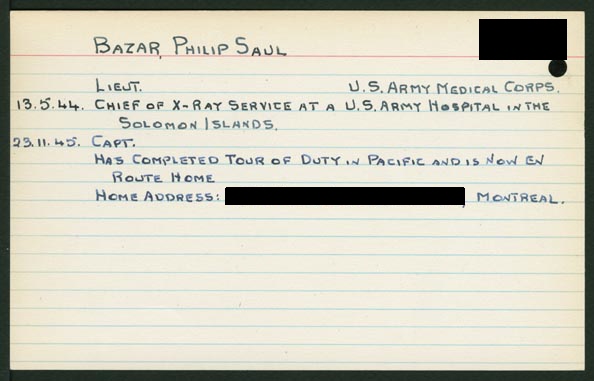 BAZAR, PHILIP SAUL
LIEUT. U.S. ARMY MEDICAL CORPS.
13.5.44. CHIEF OF X-RAY SERVICE AT A U.S. ARMY HOSPITAL IN THE
SOLOMON ISLANDS.
23.11.45. CAPT.
HAS COMPLETED TOUR OF DUTY IN PACIFIC AND IS NOW EN
ROUTE HOME
HOME ADDRESS: , MONTREAL.